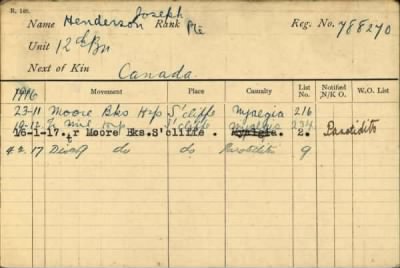 R. 149.
Name Henderson Joseph Rank Pte Reg. No. 788270
Unit 12th Bn
Next of Kin Canada.
1916 Movement Place Casualty List No. Notified N/K O. W.O. List
23-11 Moore Bks Hsp S'cliffe Myalgia 216
19-12 Tr Mil Hsp S'cliffe Myalgia 234
16-1-17. tr Moore Bks. S'cliffe. Myalgia. 2. Parotiditis
4.2.17 Disch do do Parotiditis 9